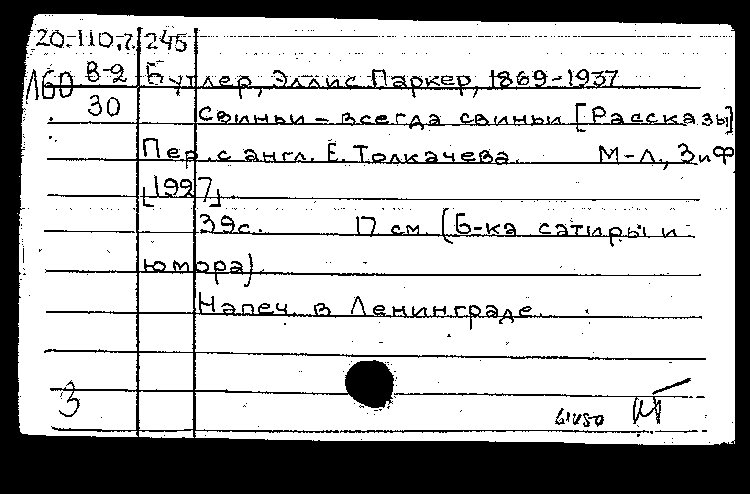 20-110.7. 245
160 В-2 Бутлер, Эллис Паркер, 1869-1937
30 Свиньи - всегда свиньи [Рассказы]
Пер. с англ. Е. Толкачева. М-Л., ЗиФ
[1927].
39с. 17 см. (Б-ка сатиры и
юмора)
Напеч. в Ленинграде.
3